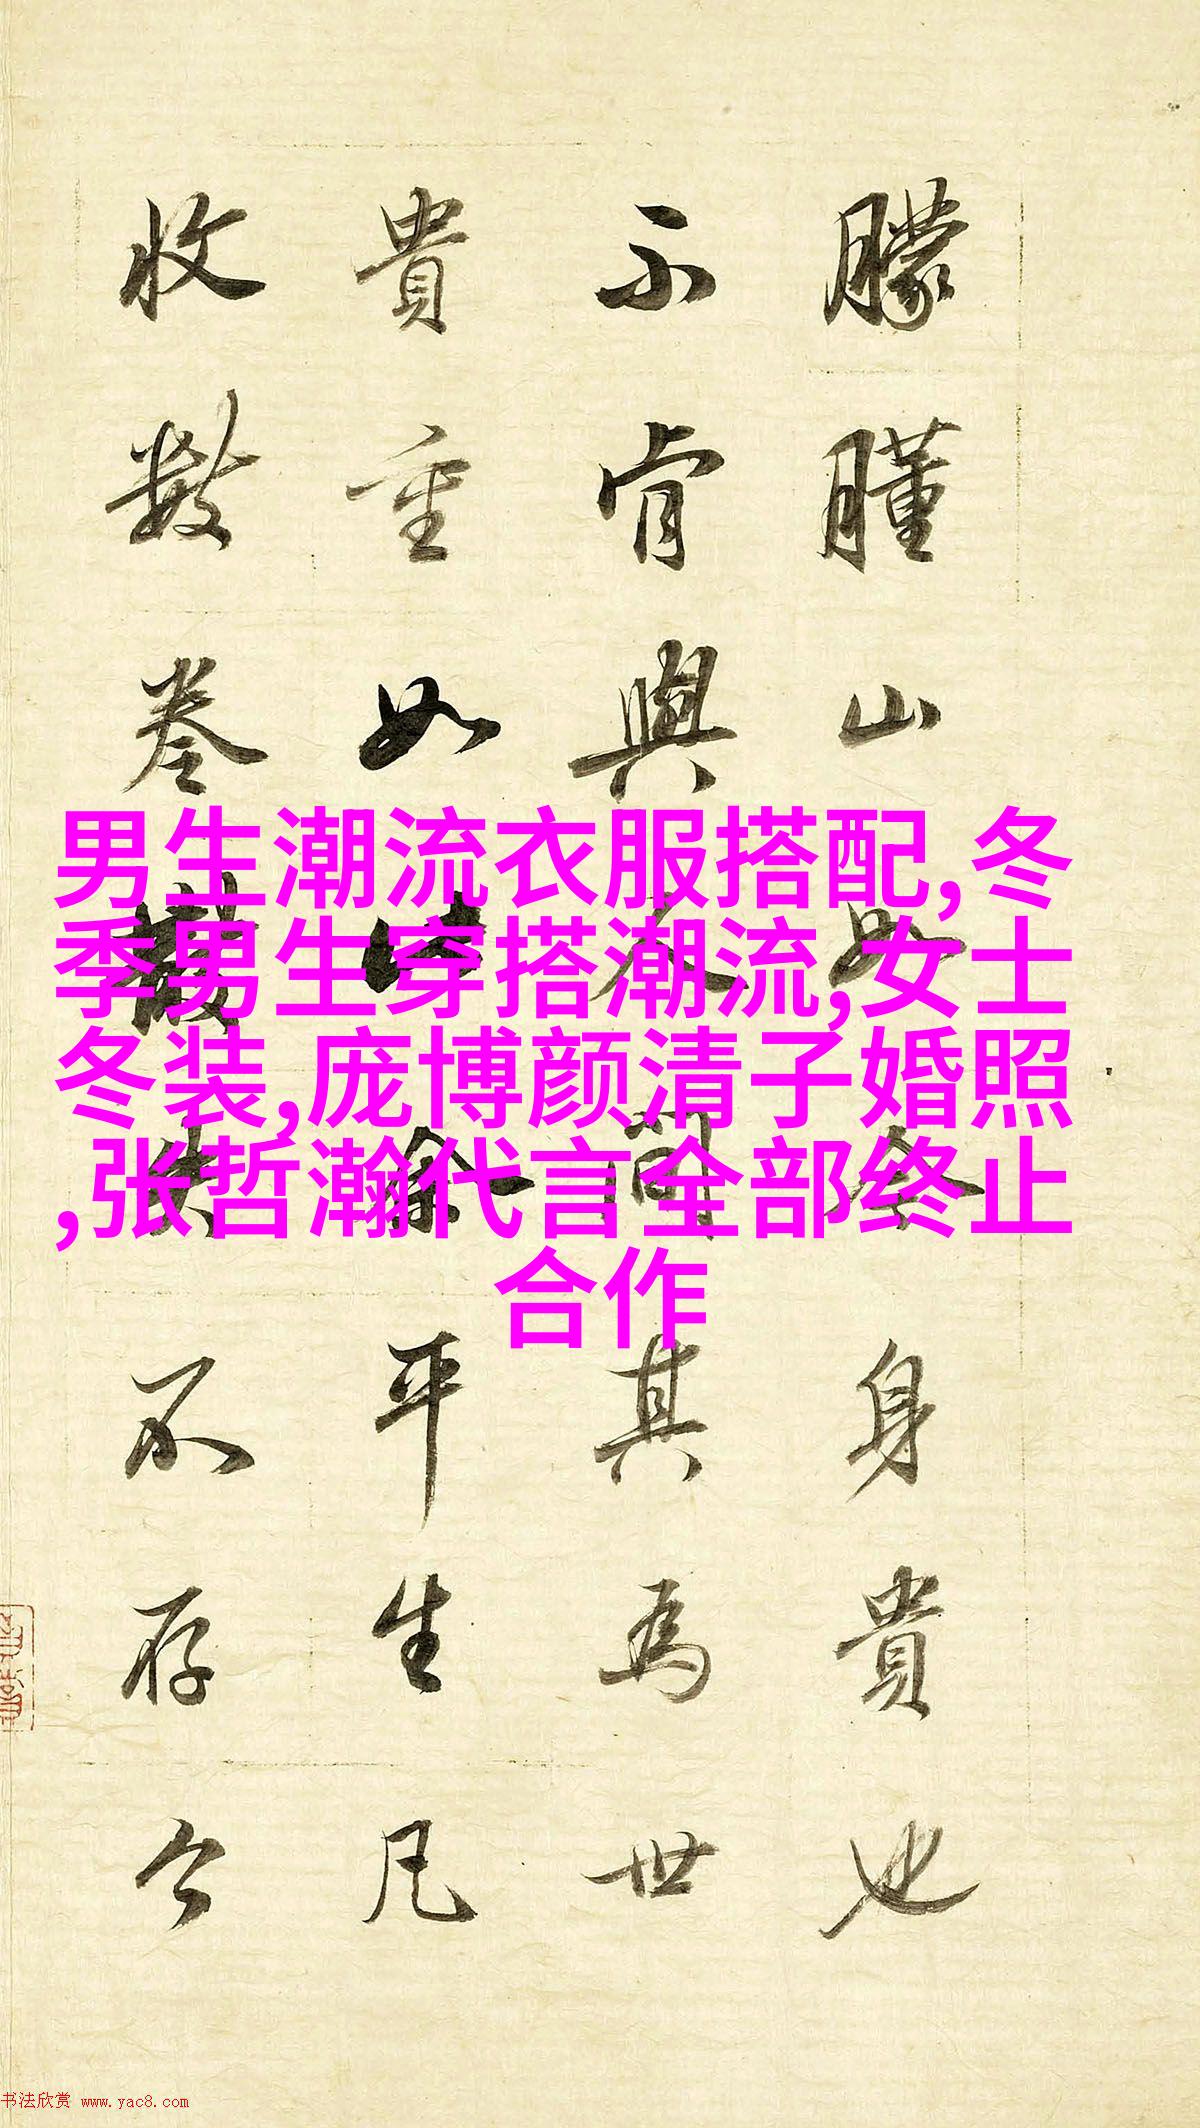 朦朣山如今身貴也
不肯與人間其為世
貴重如此余平生凡
收數卷散失不存今
男生潮流衣服搭配,冬
季男生穿搭潮流,女士
冬装,庞博颜清子婚照
,张哲瀚代言全部终止
合作
书法欣赏 www.yac8.com